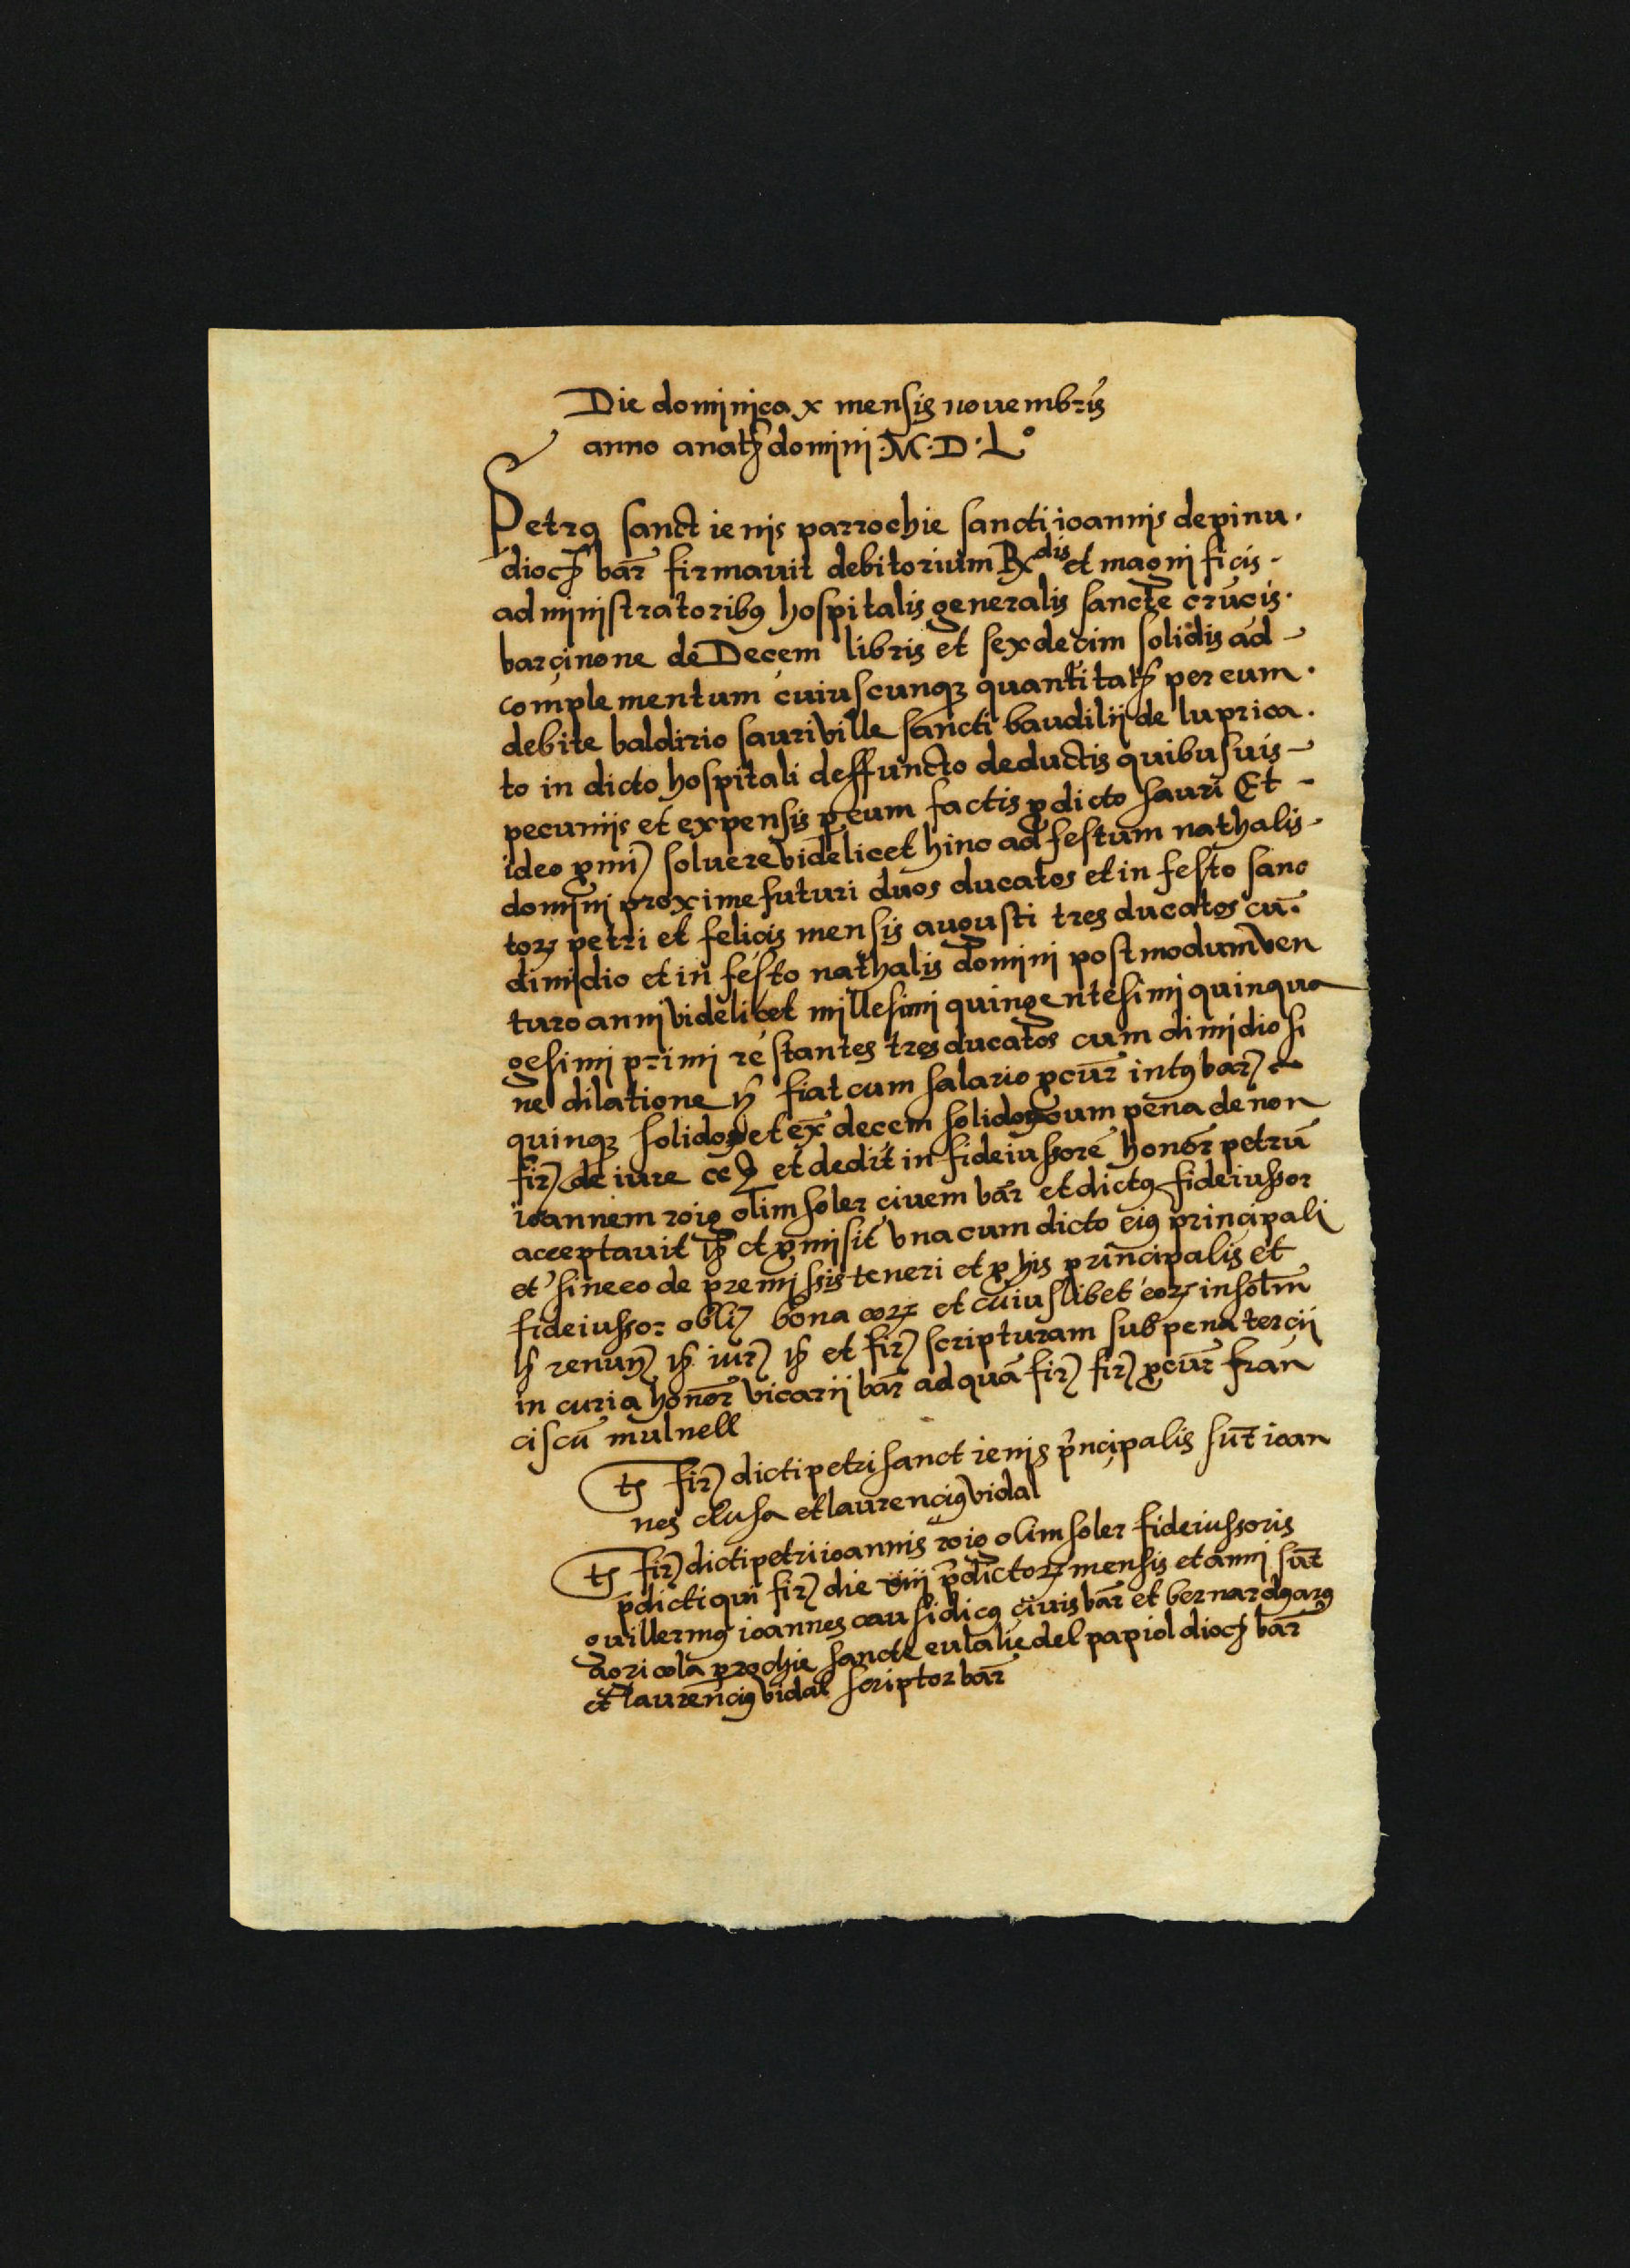 Die dominica x mensis nouembris
anno a natꝭ domini .M.D.Lº
Petrꝰ sanct ienis parrochie sancti ioannis de pinu.
diocꝭ bar̄ firmauit debitorium Rx^dis et magnificis.
administratoribꝰ hospitalis generalis sancte crucis.
barcinone de Decem libris et sexdecim solidis ad
complementum cuiuscunqꝫ quantitatꝭ per eum.
debite baldirio sauri ville sancti baudilij de luprica.
to in dicto hospitali deffuncto deductis quibusuis
pecuniis et expensis ꝑ eum factis ꝓ dicto sauri Et
ideo ꝓmi) soluere videlicet hinc ad festum nathalis
domini proxime futuri duos ducatos et in festo sanc
toꝝ petri et felicis mensis augusti tres ducatos cū.
dimidio et in festo nathalis domini postmodum ven
turo anni videlicet millesimi quingentesimi quinqua
gesimi primi restantes tres ducatos cum dimidio si
ne dilatione fiat cum salario ꝓcur̄ intꝰ bar)
quinqꝫ solidos et ex̄ decem solidos cum pena de non
fir) de iure et dedit in fideiussorē honor̄ petrū
ioannem roig olim soler ciuem bar̄ et dictꝰ fideiussor
acceptauit et ꝓmisit vna cum dicto eiꝰ principali
et sine eo de premissis teneri et ꝓ his principalis et
fideiussor obli) bona eoꝝ et cuiuslibet eoꝝ insolm̄
renun) iur) et fir) scripturam sub pena tercii
in curia honor̄ vicarii bar̄ ad quā fir) fir) ꝓcur̄ fran
ciscū mulnell
tꝭ fir) dicti petri sanct ienis pͥncipalis sūt ioan
nes clusa et laurenciꝰ vidal
tꝭ fir) dicti petri ioannis roig olim soler fideiussoris
p̄dicti qui fir) die viiij p̄dictoꝝ mensis et anni sūt
guillermꝰ ioannes causidicꝰ ciuis bar̄ et bernardꝰ arꝰ
agricola ꝑrochie sancte eulalie del papiol diocꝭ bar̄
et laurenciꝰ vidal scriptor bar̄